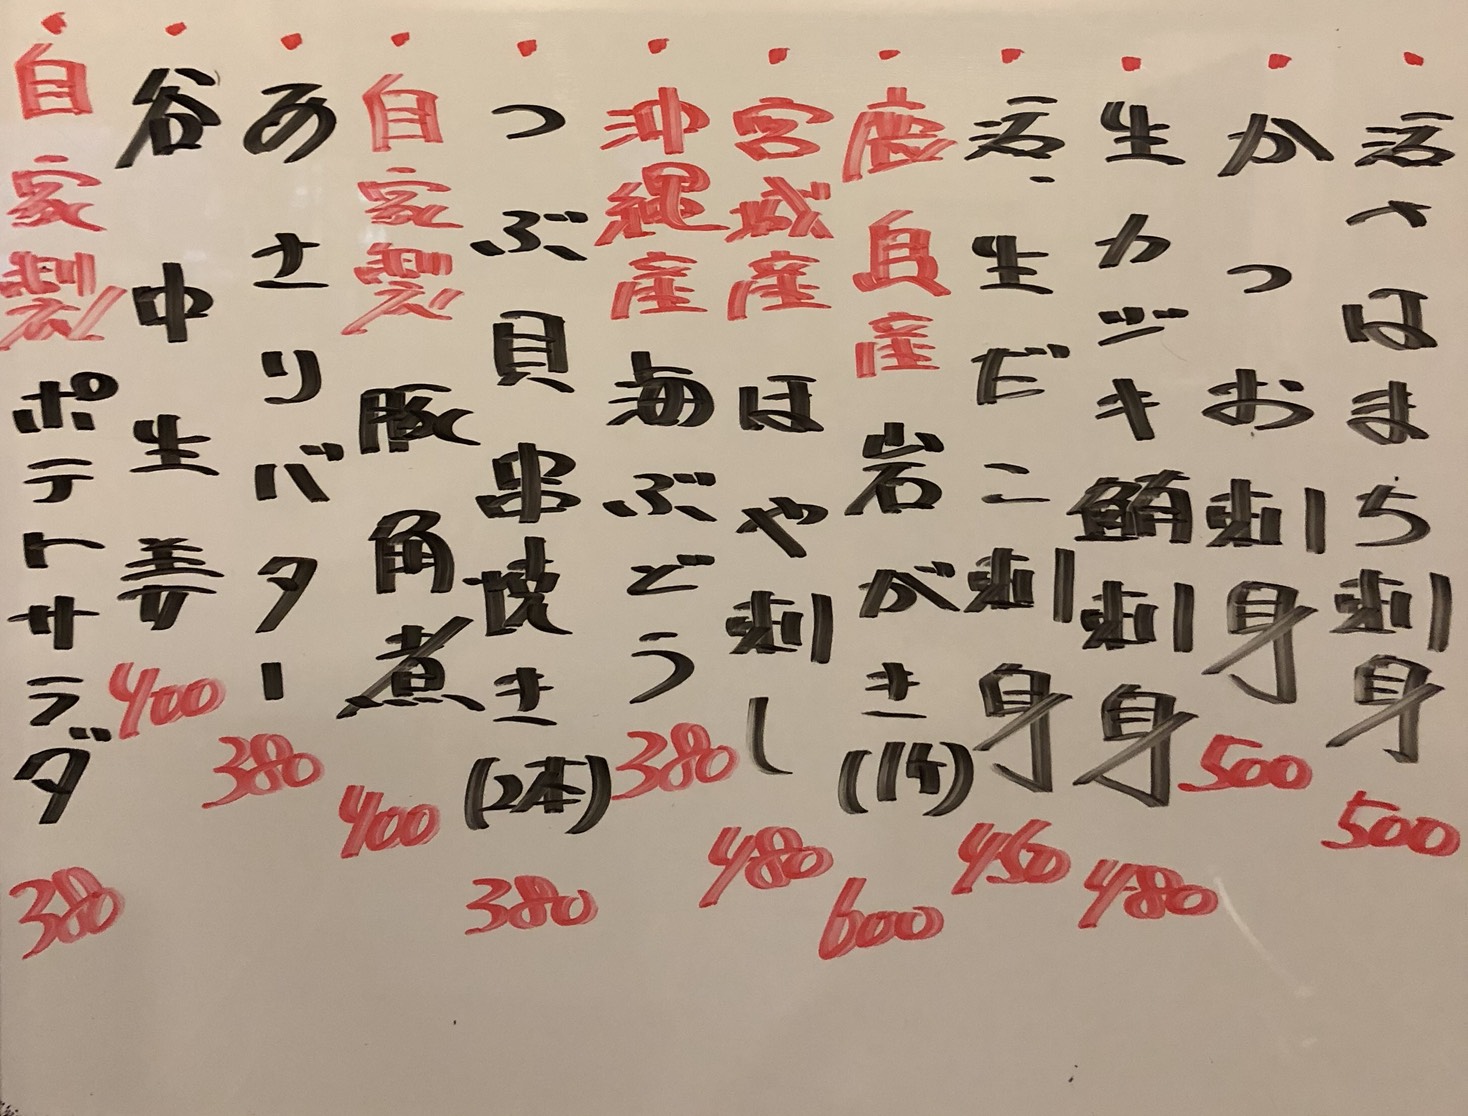 ・活〆はまち刺身 500
・かつお刺身 500
・生カジキ鮪刺身 480
・活、生だこ刺身 450
・鹿島産 岩がき(1ケ) 600
・宮城産 ほや刺し 480
・沖縄産 海ぶどう 380
・つぶ貝串焼き(2本) 380
・自家製 豚角煮 400
・あさりバター 380
・谷中生姜 400
・自家製 ポテトサラダ 380